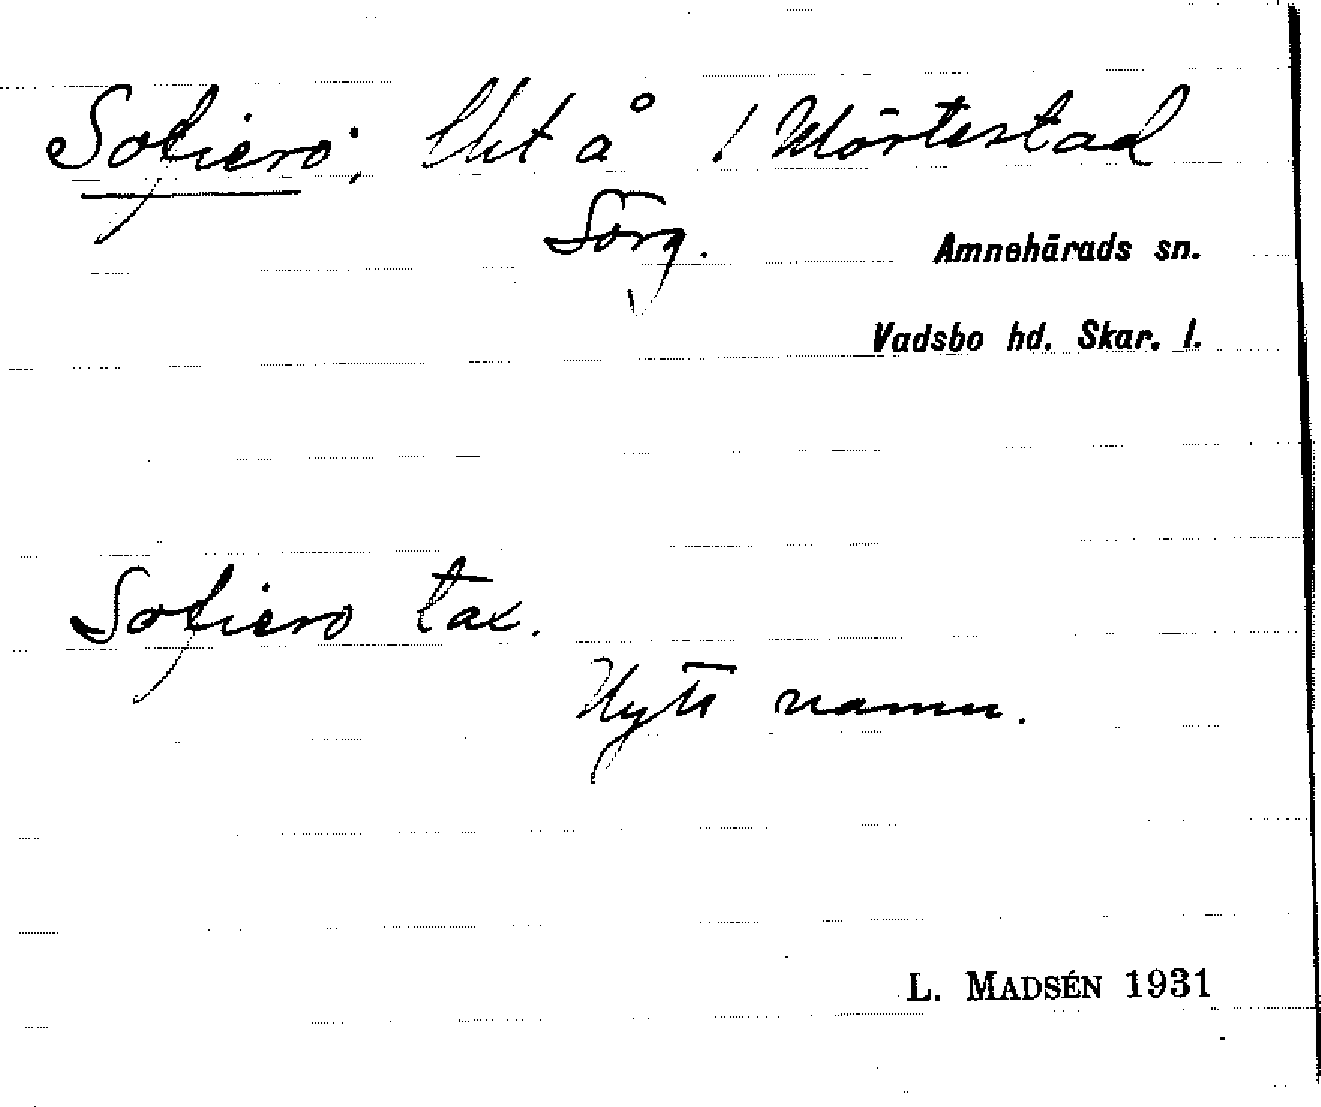 Sofiero; lht å 1 Mörtestad
Sörg.
Amnehärads sn.
Vadsbo hd. Skar. l.
Sofiero tax.
Nytt namn.
L. MADSÉN 1931